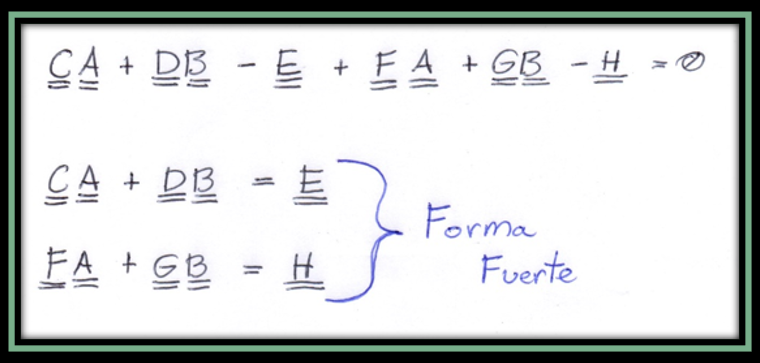 CA + DB - E + FA + GB - H = 0
CA + DB = E
FA + GB = H
Forma
Fuerte